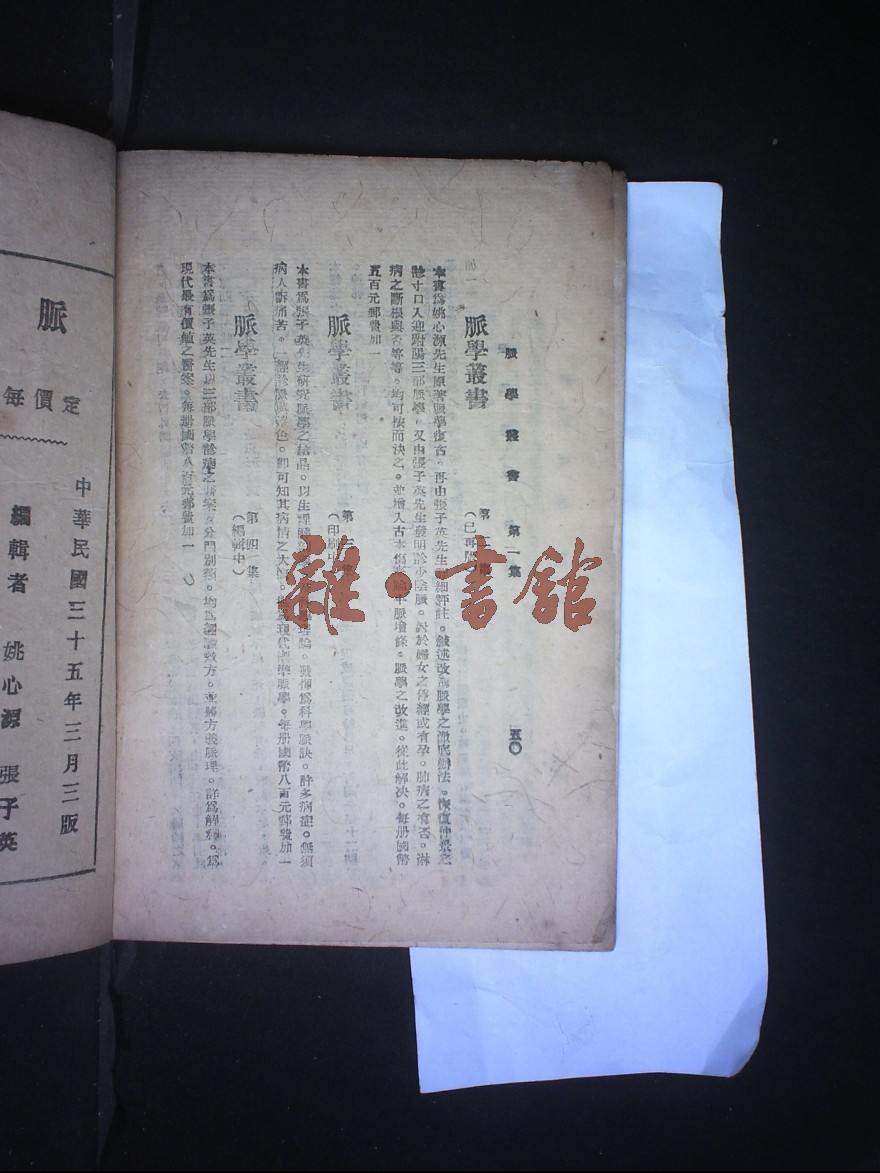 脈學叢書 第二集 五〇
脈學叢書
第二集
(已再版)
本書爲姚心源先生原著脈學復古。再由張子英先生詳細評註。敍述改良脈學之澈底辦法。恢復仲景之
診寸口人迎趺陽三部脈學。又由張子英先生發明診少陰脈。對於婦女之停經或有孕。肺病之有否。淋
病之斷根與否等等。均可按而決之。並增入古本傷寒論平脈增條。脈學之改進。從此解决。每册國幣
五百元郵費加一
脈學叢書
第三集
(印刷中)
本書爲張子英先生研究脈學之結晶。以生理解
理論。發揮爲科學脈訣。許多病症。無須
病人訴痛苦。一經診脈察色。卽可知其病情之大
現代科學脈學。每册國幣八百元郵費加一
脈學叢書
第四集
(編輯中)
本書爲張子英先生以三部脈學診病之醫案。分門別類。均爲經驗效方。並將方義脈理。詳爲解釋。爲
現代最有價值之醫案。每册國幣八百元郵費加一
脈
定價每
中華民國三十五年三月三版
編輯者 姚心源 張子英
雜·書館